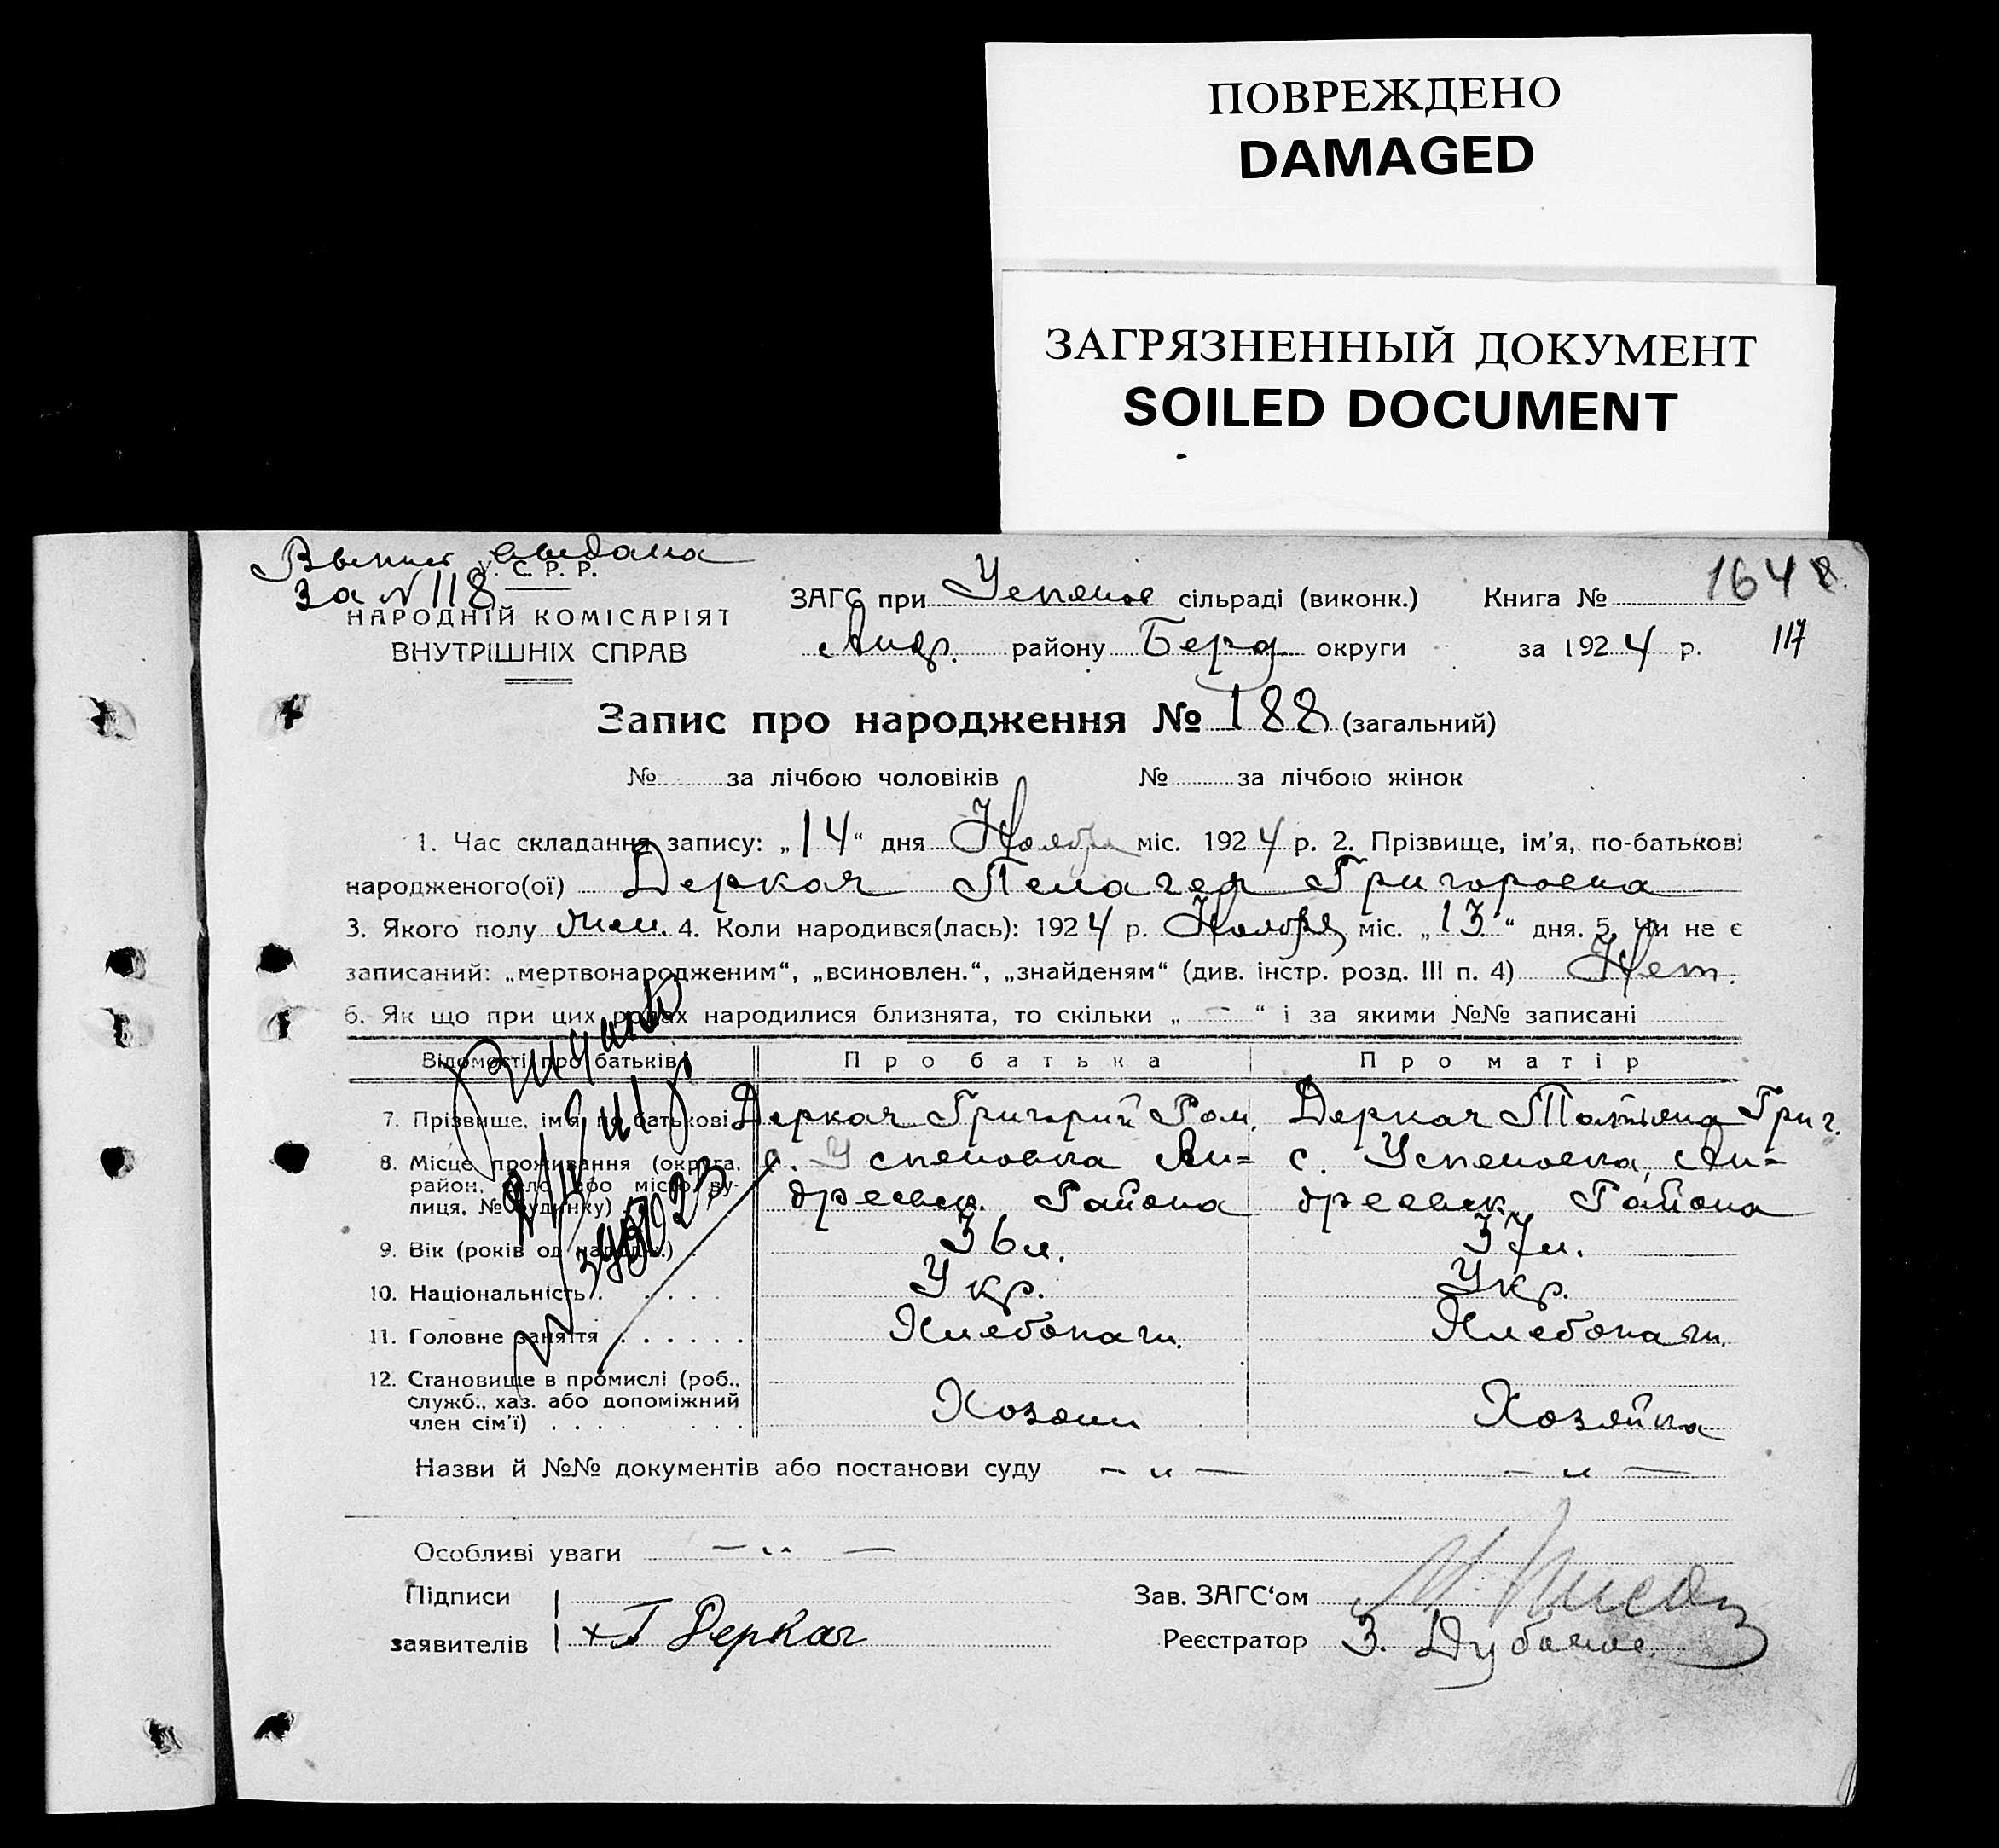 ПОВРЕЖДЕНО
DAMAGED
ЗАГРЯЗНЕННЫЙ ДОКУМЕНТ
SOILED DOCUMENT
Выпись выдана
за № 118
У. С. Р. Р.
НАРОДНІЙ КОМІСАРІЯТ
ВНУТРІШНІХ СПРАВ
ЗАГС при Успенов сільраді (виконк.) Книга № 1648
Андр. району Берд. округи за 1924 р. 117
Запис про народження № 188 (загальний)
№ за лічбою чоловіків № за лічбою жінок
1. Час складання запису: „14“ дня Ноября міс. 1924 р. 2. Прізвище, ім'я, по-батькові
народженого(ої) Деркач Пелагея Григоровна
3. Якого полу жен. 4. Коли народився(лась): 1924 р. Ноября міс. „13“ дня. 5. Чи не є
записаний: „мертвонародженим“, „всиновлен.“, „знайденям“ (див. інстр. розд. III п. 4) Нет.
6. Як що при цих родах народилися близнята, то скільки „ — “ і за якими №№ записані
Відомості про батьків Про батька Про матір
7. Прізвище, ім'я, по батькові Деркач Григорий Ром. Деркач Татьяна Григ.
8. Місце проживання (округа, район, село або місто, вулиця, № будинку) с. Успеновка Ан=дреевск. Района с. Успеновка, Ан=дреевск. Района
9. Вік (років од народж.) 36 л. 37 л.
10. Національність Укр. Укр.
11. Головне заняття Хлебопаш. Хлебопаш.
12. Становище в промислі (роб., служб., хаз. або допоміжний член сім'ї) Хозяин Хозяйка
Назви й №№ документів або постанови суду — „ — — „ —
Особливі уваги — „ —
Підписи
заявителів + Г Деркач
Зав. ЗАГС‘ом
Реєстратор З.